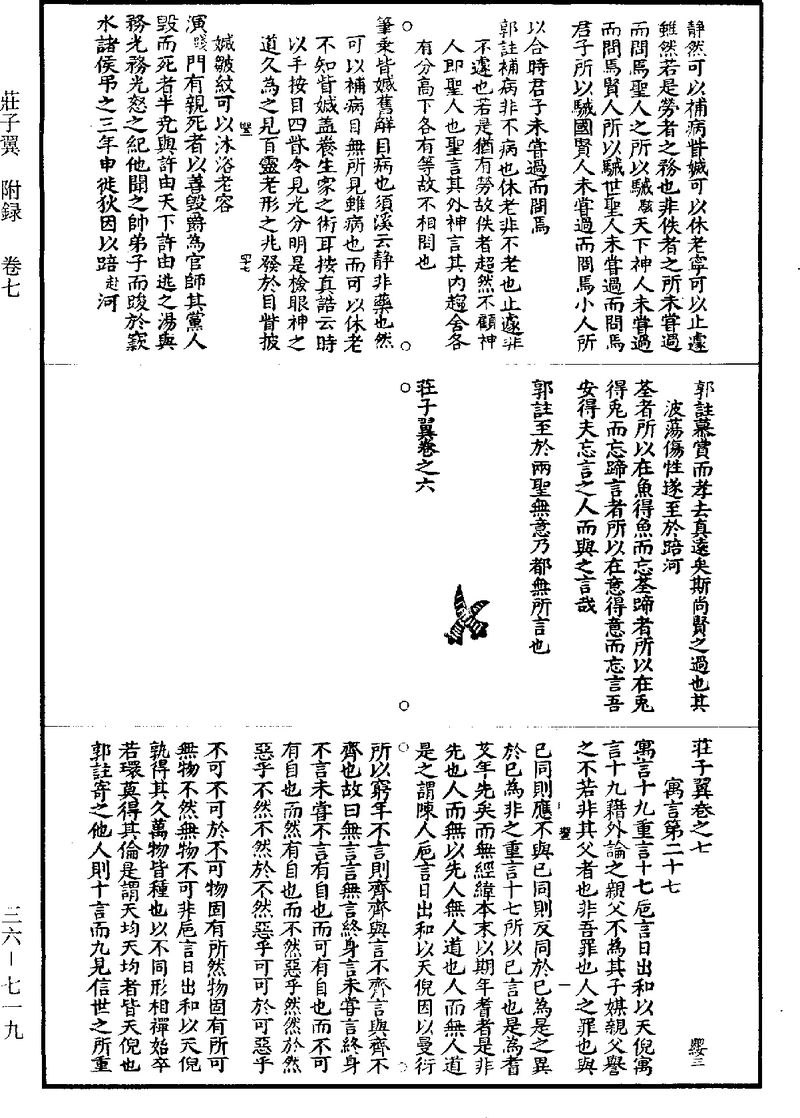 靜然可以補病眥𡟬可以休老寧可以止遽
雖然若是勞者之務也非佚者之所未嘗過
而問焉聖人之所以駴駭天下神人未嘗過
而問焉賢人所以駴世聖人未嘗過而問焉
君子所以駴國賢人未嘗過而問焉小人所
以合時君子未嘗過而問焉
郭註補病非不病也休老非不老也止遽非
不遽也若是猶有勞故佚者超然不顧神
人即聖人也聖言其外神言其內趨舍各
有分高下各有等故不相問也
筆乘眥㓕舊解目病也須溪云靜非藥也然
可以補病目無所見雖病也而可以休老
不知眥㓕蓋養生家之術耳按真誥云時
以手按目四眥令見光分明是檢眼神之
道久為之見百靈老形之兆發於目眥披
㓕皺紋可以沐浴老容
演踐門有親死者以善毀爵為官師其黨人
毀而死者半堯與許由天下許由逃之湯與
務光務光怒之紀他聞之帥弟子而踆於窾
水諸侯弔之三年申徒狄因以踣赴河
郭註慕賞而孝去真遠矣斯尚賢之過也其
波蕩傷性遂至於踣河
荃者所以在魚得魚而忘荃蹄者所以在兎
得兎而忘蹄言者所以在意得意而忘言吾
安得夫忘言之人而與之言哉
郭註至於兩聖無意乃都無所言也
莊子翼卷之六
莊子翼卷之七 
寓言第二十七
寓言十九重言十七巵言日出和以天倪寓
言十九藉外論之親父不為其子媒親父譽
之不若非其父者也非吾罪也人之罪也與
已同則應不與已同則反同於已為是之異
於已為非之重言十七所以已言也是為耆
艾年先矣而無經緯本末以期年耆者是非
先也人而無以先人無人道也人而無人道
是之謂陳人巵言日出和以天倪因以曼衍
所以窮年不言則齊齊與言不齊言與齊不
齊也故曰無言言無言終身言未嘗言終身
不言未嘗不言有自也而可有自也而不可
有自也而然有自也而不然惡乎然然於然
惡乎不然不然於不然惡乎可可於可惡乎
不可不可於不可物固有所然物固有所可
無物不然無物不可非巵言日出和以天倪
孰得其久萬物皆種也以不同形相禪始卒
若環莫得其倫是謂天均天均者皆天倪也
郭註寄之他人則十言而九見信世之所重
莊子翼 附録 卷七
三六—七一九